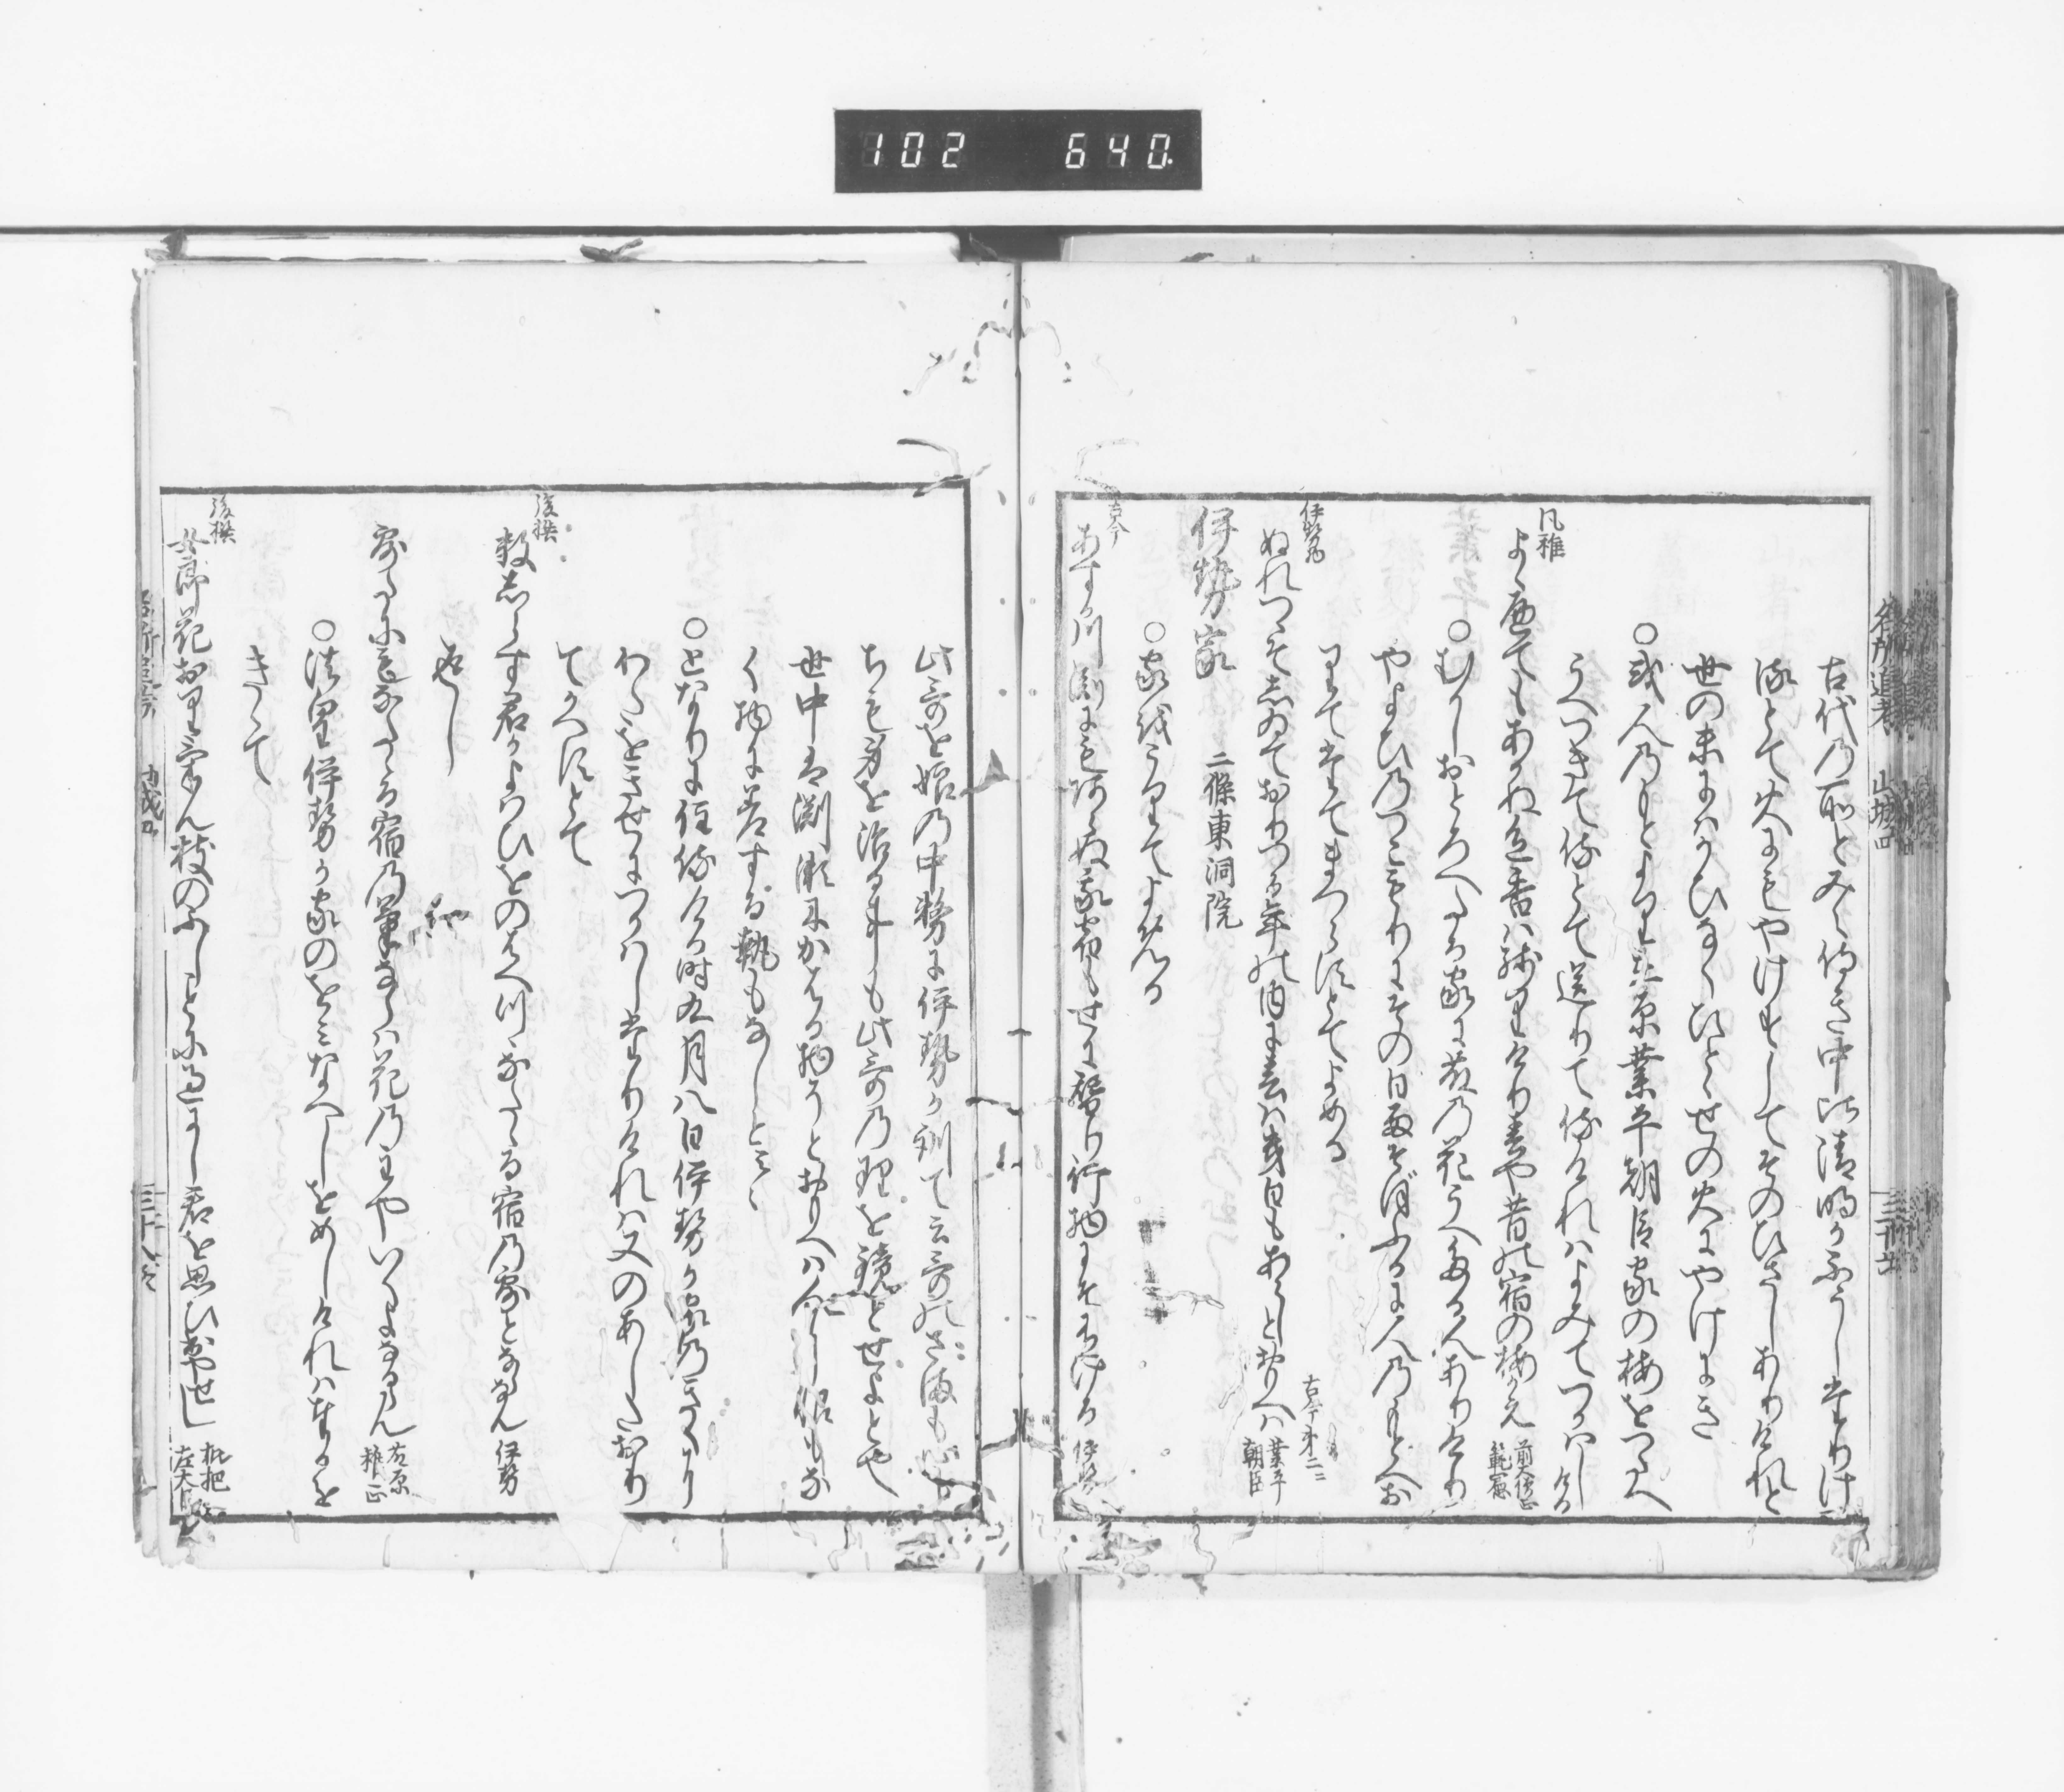 102 640.
名所追考 山城四 三十七
古代乃所とみえ侍き中比清明かふうしたりけ
るとて火にもやけすしてそのひさしありけれと
世の末にはかひなくひとゝせの火にやけにき
○或人乃もとより在原業平朝臣家の梅をつたへ
うへつきて侍とて送りて侍けれはよみてつかはしける
凡雅
よゝ歴てもあかぬ色香は残りけり春や昔の宿の梅かえ 前大僧正範憲
○むかしおとろへたる家に藤乃花うへたる人ありけり
やよひ乃つこもりにその日雨そほふるに人乃もとへお
りてたてまつらすとてよめる
伊勢物
ぬれつゝそしゐておりつる年の内に春は幾日もあらしとおもへは 業平朝臣
古今第二ニ
伊勢家 二條東洞院
○家をうりてよめる
古今
あすか川渕にもあらぬ我宿もせに替り行物にそ有ける 伊勢
此哥を娘乃中務に伊勢か訓て云哥のさまも心
もち身を治る事も此哥乃理を鏡とせよとや
世中は渕瀬にかはる物そとおもへは
く物に着する執もなしと云々
○となりに住侍ける時九月八日伊勢か家乃きくに
わたをきせにつかはしたりけれは又のあしたおり
てかへすとて
後撰
数しらす君かよはひをのはへつゝなたゝる宿乃露とならなん 伊勢
返し
露たにもなたゝる宿乃菊ならは花乃主やいくよなるらん 在原雅正
○法皇伊勢か家のをみなへしをめしけれは奉るを
きゝて
後撰
女郎花おりけん枝のふしことに過にし君を思ひいてやせし 枇杷左大臣
名所追考 山城四 三十八